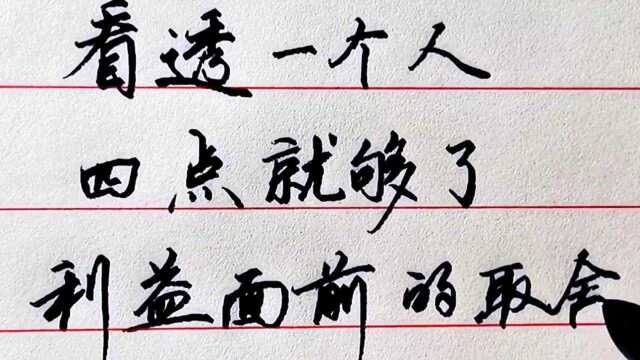 看透一个人
四点就够了
利益面前的取舍